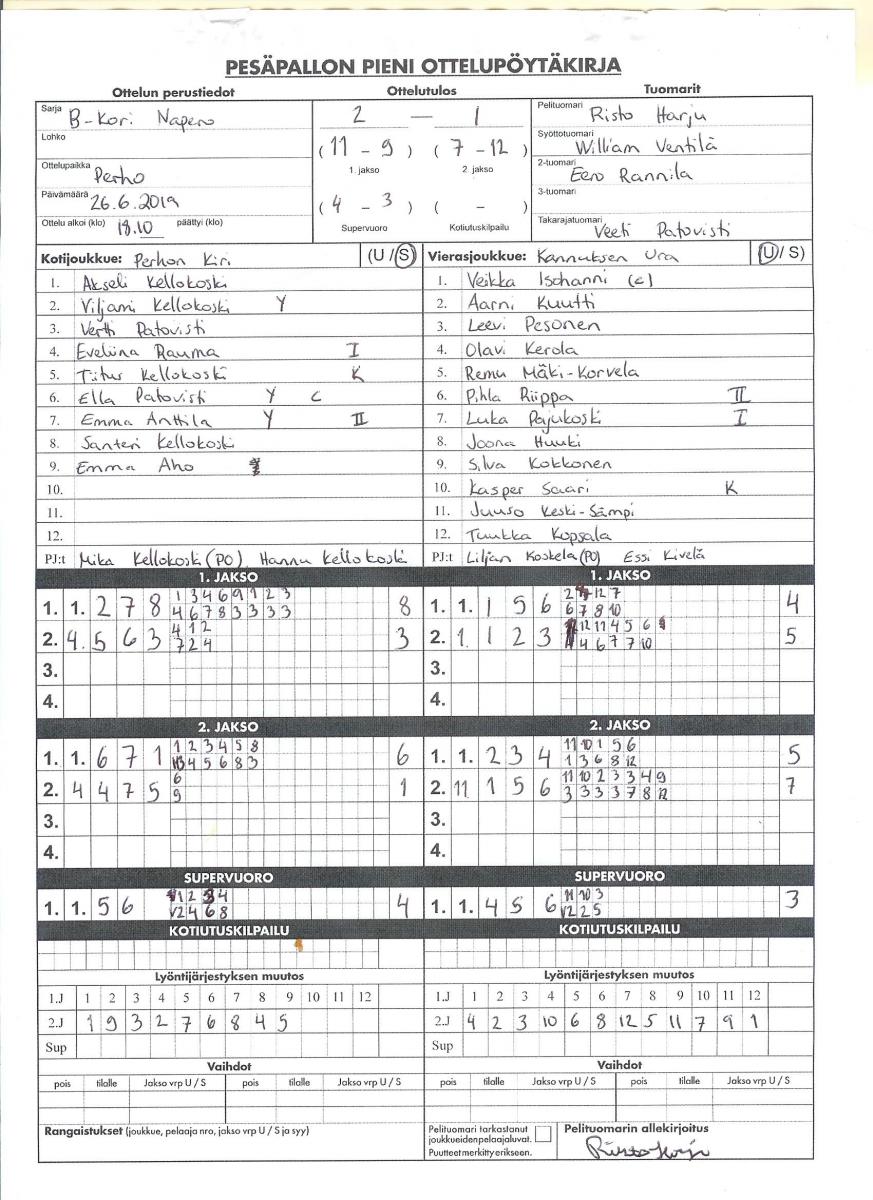 PESÄPALLON PIENI OTTELUPÖYTÄKIRJA
Ottelun perustiedot Ottelutulos Tuomarit
Sarja B-Kori Napero
Lohko
Ottelupaikka Perho
Päivämäärä 26.6.2019
Ottelu alkoi (klo) 18.10 päättyi (klo)
2 — 1
(11 - 9) (7 - 12)
1. jakso 2. jakso
(4 - 3) ( - )
Supervuoro Kotiutuskilpailu
Pelituomari Risto Harju
Syöttötuomari William Ventilä
2-tuomari Eero Rannila
3-tuomari
Takarajatuomari Veeti Patovisti
Kotijoukkue: Perhon Kiri (U / S)
1. Akseli Kellokoski
2. Viljami Kellokoski Y
3. Vertti Patovisti
4. Eveliina Rauma I
5. Titus Kellokoski K
6. Ella Patovisti Y C
7. Emma Anttila Y II
8. Santeri Kellokoski
9. Emma Aho
10.
11.
12.
PJ:t Mika Kellokoski (PO), Hannu Kellokoski
Vierasjoukkue: Kannuksen Ura (U / S)
1. Veikka Isohanni (c)
2. Aarni Kuutti
3. Leevi Pesonen
4. Olavi Kerola
5. Remu Mäki-Korvela
6. Pihla Riippa II
7. Luka Pajukoski I
8. Joona Huuki
9. Silva Kokkonen
10. Kasper Saari K
11. Juuso Keski-Sämpi
12. Tuukka Kopsala
PJ:t Liljan Koskela (PO) Essi Kivelä
1. JAKSO
1 3 4 6 9 1 2 3
1. 1. 2 7 8 4 6 7 8 3 3 3 3 8
4 1 2
2. 4. 5 6 3 7 2 4 3
3.
4.
1. JAKSO
2 12 7
1. 1. 1 5 6 6 7 8 10 4
12 11 4 5 6
2. 1 1 2 3 4 6 7 7 10 5
3.
4.
2. JAKSO
1 2 3 4 5 8
1. 1. 6 7 1 4 5 6 8 3 6
6
2. 4 4 7 5 9 1
3.
4.
2. JAKSO
11 10 1 5 6
1. 1. 2 3 4 1 3 6 8 12 5
11 10 2 3 3 4 9
2. 11 1 5 6 3 3 3 3 7 8 12 7
3.
4.
SUPERVUORO
1 2 3 4
1. 1. 5 6 V2 4 6 8 4
SUPERVUORO
11 10 3
1. 1. 4 5 6 V2 2 5 3
KOTIUTUSKILPAILU
KOTIUTUSKILPAILU
Lyöntijärjestyksen muutos
1.J 1 2 3 4 5 6 7 8 9 10 11 12
2.J 1 9 3 2 7 6 8 4 5
Sup
Lyöntijärjestyksen muutos
1.J 1 2 3 4 5 6 7 8 9 10 11 12
2.J 4 2 3 10 6 8 12 5 11 7 9 1
Sup
Vaihdot
pois tilalle Jakso vrp U / S pois tilalle Jakso vrp U / S
Vaihdot
pois tilalle Jakso vrp U / S pois tilalle Jakso vrp U / S
Rangaistukset (joukkue, pelaaja nro, jakso vrp U / S ja syy)
Pelituomari tarkastanut
joukkueidenpelaajaluvat.
Puutteet merkitty erikseen.
Pelituomarin allekirjoitus
Risto Harju